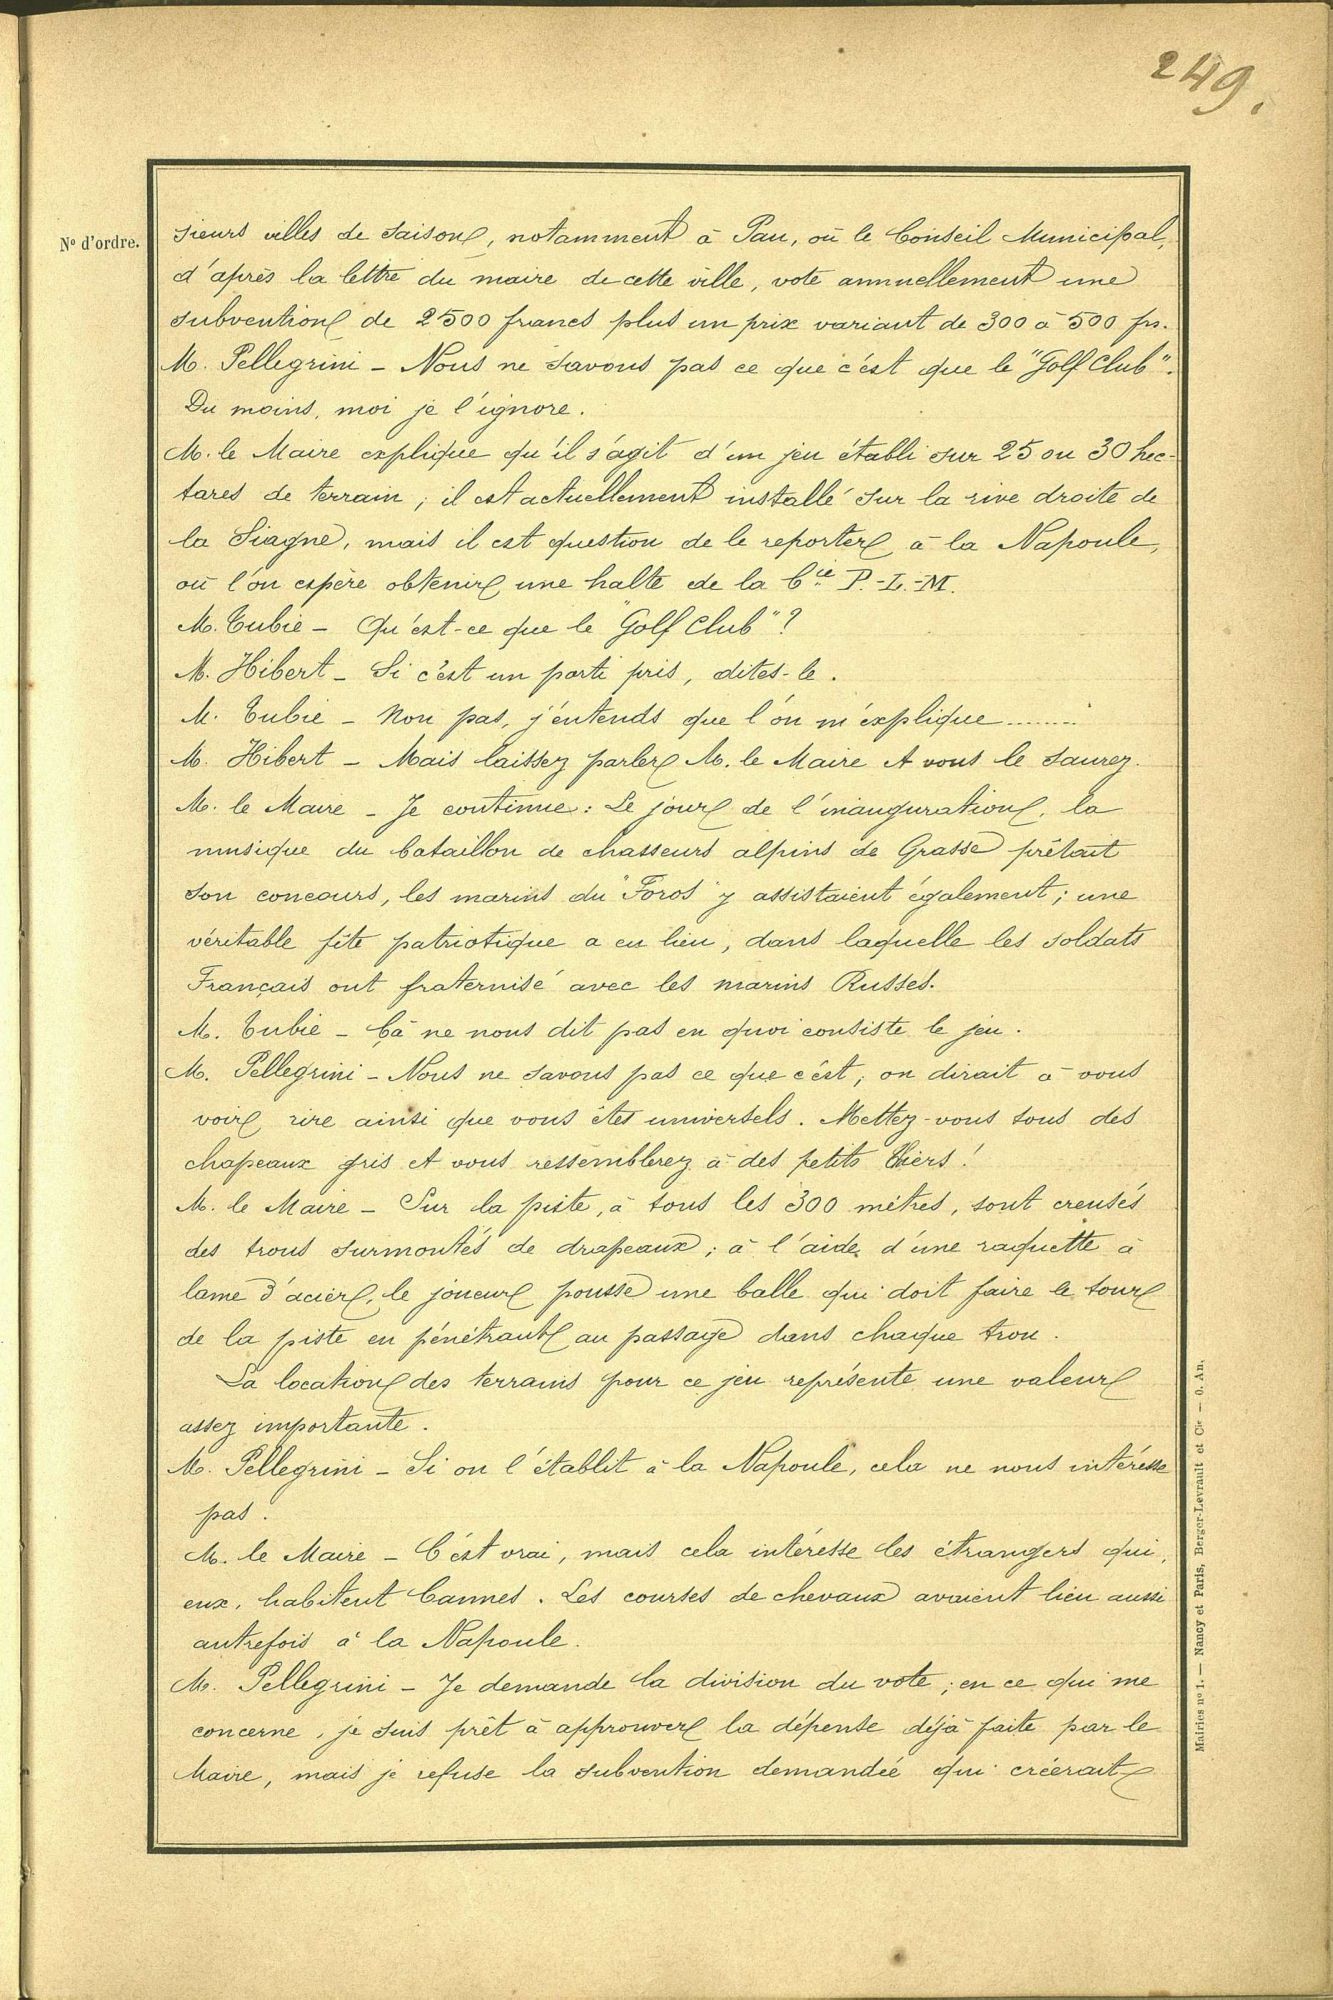 249.
N° d'ordre.
sieurs villes de saison, notamment à Pau, où le Conseil Municipal,
d'après la lettre du maire de cette ville, vote annuellement une
subvention de 2500 francs plus un prix variant de 300 à 500 frs.
M. Pellegrini - Nous ne savons pas ce que c'est que le "Golf Club".
Du moins, moi je l'ignore.
M. le Maire explique qu'il s'agit d'un jeu établi sur 25 ou 30 hec-
tares de terrain ; il est actuellement installé sur la rive droite de
la Siagne, mais il est question de le reporter à la Napoule,
où l'on espère obtenir une halte de la Cie P.-L.-M.
M. Tubie - Qu'est-ce que le "Golf Club" ?
M. Hibert - Si c'est un parti pris, dites-le.
M. Tubie - Non pas, j'entends que l'on m'explique........
M. Hibert - Mais laissez parler M. le Maire et vous le saurez.
M. le Maire - Je continue : Le jour de l'inauguration, la
musique du bataillon de chasseurs alpins de Grasse prêtait
son concours, les marins du "Foros" y assistaient également ; une
véritable fête patriotique a eu lieu, dans laquelle les soldats
Français ont fraternisé avec les marins Russes.
M. Tubie - Çà ne nous dit pas en quoi consiste le jeu.
M. Pellegrini - Nous ne savons pas ce que c'est ; on dirait à vous
voir rire ainsi que vous êtes universels. Mettez-vous tous des
chapeaux gris et vous ressemblerez à des petits Thiers !
M. le Maire - Sur la piste, à tous les 300 mètres, sont creusés
des trous surmontés de drapeaux ; à l'aide d'une raquette à
lame d'acier, le joueur pousse une balle qui doit faire le tour
de la piste en pénétrant au passage dans chaque trou.
La location des terrains pour ce jeu représente une valeur
assez importante.
M. Pellegrini - Si on l'établit à la Napoule, cela ne nous intéresse
pas.
M. le Maire - C'est vrai, mais cela intéresse les étrangers qui,
eux, habitent Cannes. Les courses de chevaux avaient lieu aussi
autrefois à la Napoule.
M. Pellegrini - Je demande la division du vote ; en ce qui me
concerne, je suis prêt à approuver la dépense déjà faite par le
Maire, mais je refuse la subvention demandée qui créerait
Mairies n° 1. — Nancy et Paris, Berger-Levrault et Cie — O. An.